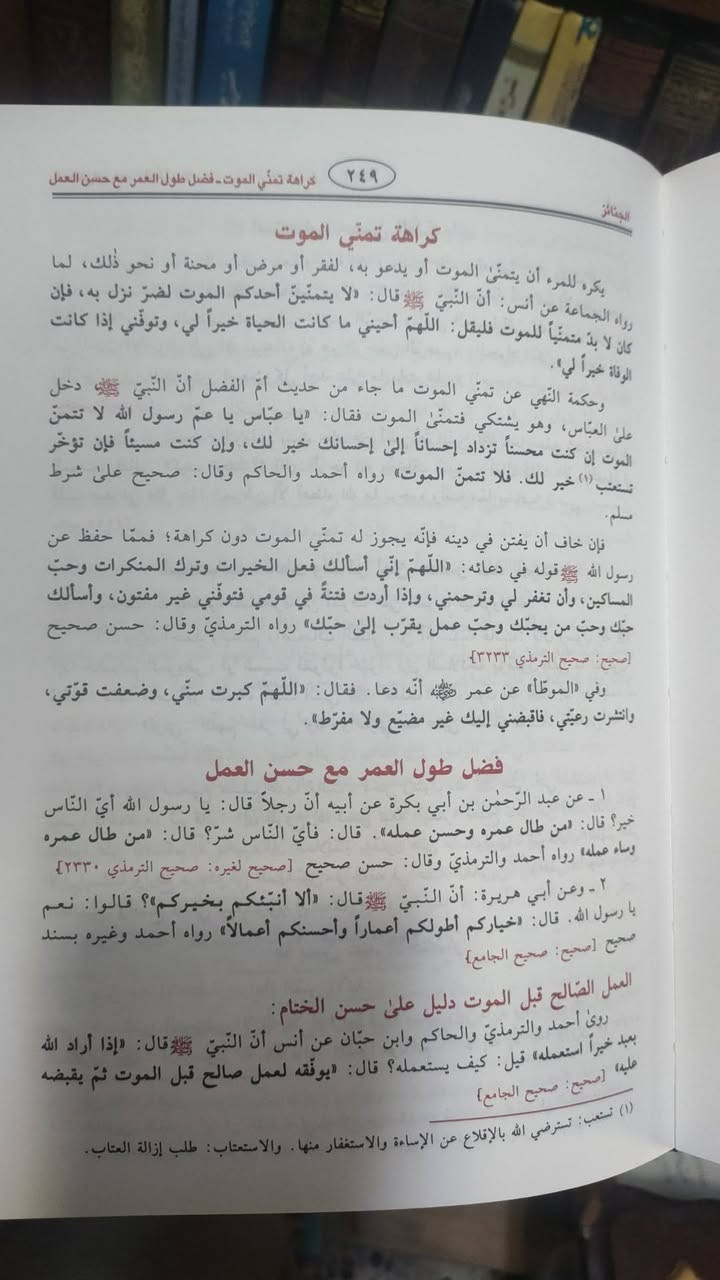 الجنائز ٢٤٩ كراهة تمنّي الموت ـ فضل طول العمر مع حسن العمل
كراهة تمنّي الموت
يكره للمرء أن يتمنّىٰ الموت أو يدعو به، لفقر أو مرض أو محنة أو نحو ذٰلك، لما
رواه الجماعة عن أنس: أنّ النّبيّ ﷺ قال: «لا يتمنّينّ أحدكم الموت لضرّ نزل به، فإن
كان لا بدّ متمنّياً للموت فليقل: اللّهمّ أحيني ما كانت الحياة خيراً لي، وتوفّني إذا كانت
الوفاة خيراً لي».
وحكمة النّهي عن تمنّي الموت ما جاء من حديث أمّ الفضل أنّ النّبيّ ﷺ دخل
علىٰ العبّاس، وهو يشتكي فتمنّىٰ الموت فقال: «يا عبّاس يا عمّ رسول الله لا تتمنّ
الموت إن كنت محسناً تزداد إحساناً إلىٰ إحسانك خير لك، وإن كنت مسيئاً فإن تؤخّر
تستعتب(١) خير لك. فلا تتمنّ الموت» رواه أحمد والحاكم وقال: صحيح علىٰ شرط
مسلم.
فإن خاف أن يفتن في دينه فإنّه يجوز له تمنّي الموت دون كراهة؛ فممّا حفظ عن
رسول الله ﷺ قوله في دعائه: «اللّهمّ إنّي أسألك فعل الخيرات وترك المنكرات وحبّ
المساكين، وأن تغفر لي وترحمني، وإذا أردت فتنةً في قومي فتوفّني غير مفتون، وأسألك
حبّك وحبّ من يحبّك وحبّ عمل يقرّب إلىٰ حبّك» رواه الترمذيّ وقال: حسن صحيح
[صحيح: صحيح الترمذي ٣٢٣٣].
وفي «الموطّأ» عن عمر رضي الله عنه أنّه دعا. فقال: «اللّهمّ كبرت سنّي، وضعفت قوّتي،
وانتشرت رعيّتي، فاقبضني إليك غير مضيّع ولا مفرّط».
فضل طول العمر مع حسن العمل
١ ـ عن عبد الرّحمٰن بن أبي بكرة عن أبيه أنّ رجلاً قال: يا رسول الله أيّ النّاس
خير؟ قال: «من طال عمره وحسن عمله». قال: فأيّ النّاس شرّ؟ قال: «من طال عمره
وساء عمله» رواه أحمد والترمذيّ وقال: حسن صحيح [صحيح لغيره: صحيح الترمذي ٢٣٣٠].
٢ ـ وعن أبي هريرة: أنّ النّبيّ ﷺ قال: «ألا أنبّئكم بخيركم»؟ قالوا: نعم
يا رسول الله. قال: «خياركم أطولكم أعماراً وأحسنكم أعمالاً» رواه أحمد وغيره بسند
صحيح [صحيح: صحيح الجامع]
العمل الصّالح قبل الموت دليل علىٰ حسن الختام:
روىٰ أحمد والترمذيّ والحاكم وابن حبّان عن أنس أنّ النّبيّ ﷺ قال: «إذا أراد الله
بعبد خيراً استعمله» قيل: كيف يستعمله؟ قال: «يوفّقه لعمل صالح قبل الموت ثمّ يقبضه
عليه» [صحيح: صحيح الجامع]
(١) تستعب: تسترضي الله بالإقلاع عن الإساءة والاستغفار منها. والاستعتاب: طلب إزالة العتاب.